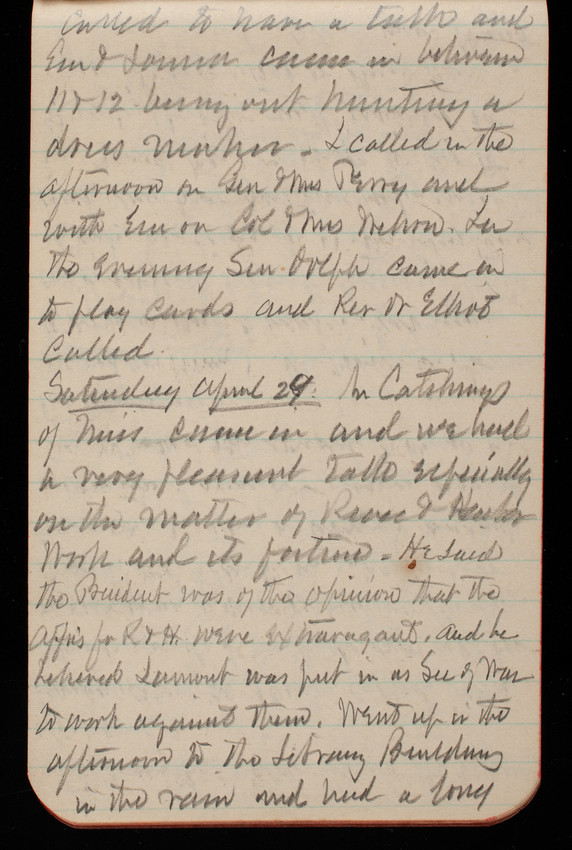 called to have a talk and
Em & came in between
11 & 12 being out hunting a
dress maker. I called in the
afternoon on Gen & Mrs Perry and
with Em on Col & Mrs Nelson. In
the evening Sen. Dolph came in
to play cards and Rev Dr Elliot
called.
Saturday April 29. Mr Catchings
of Miss came in and we had
a very pleasant talk especially
on the matter of River & Harbor
Work and its fortune - He said
the President was of the opinion that the
App'ns for R & H. were extravagant. and he
believed Lamont was put in as Sec of War
to work against them. Went up in the
afternoon to the Library Building
in the rain and had a long